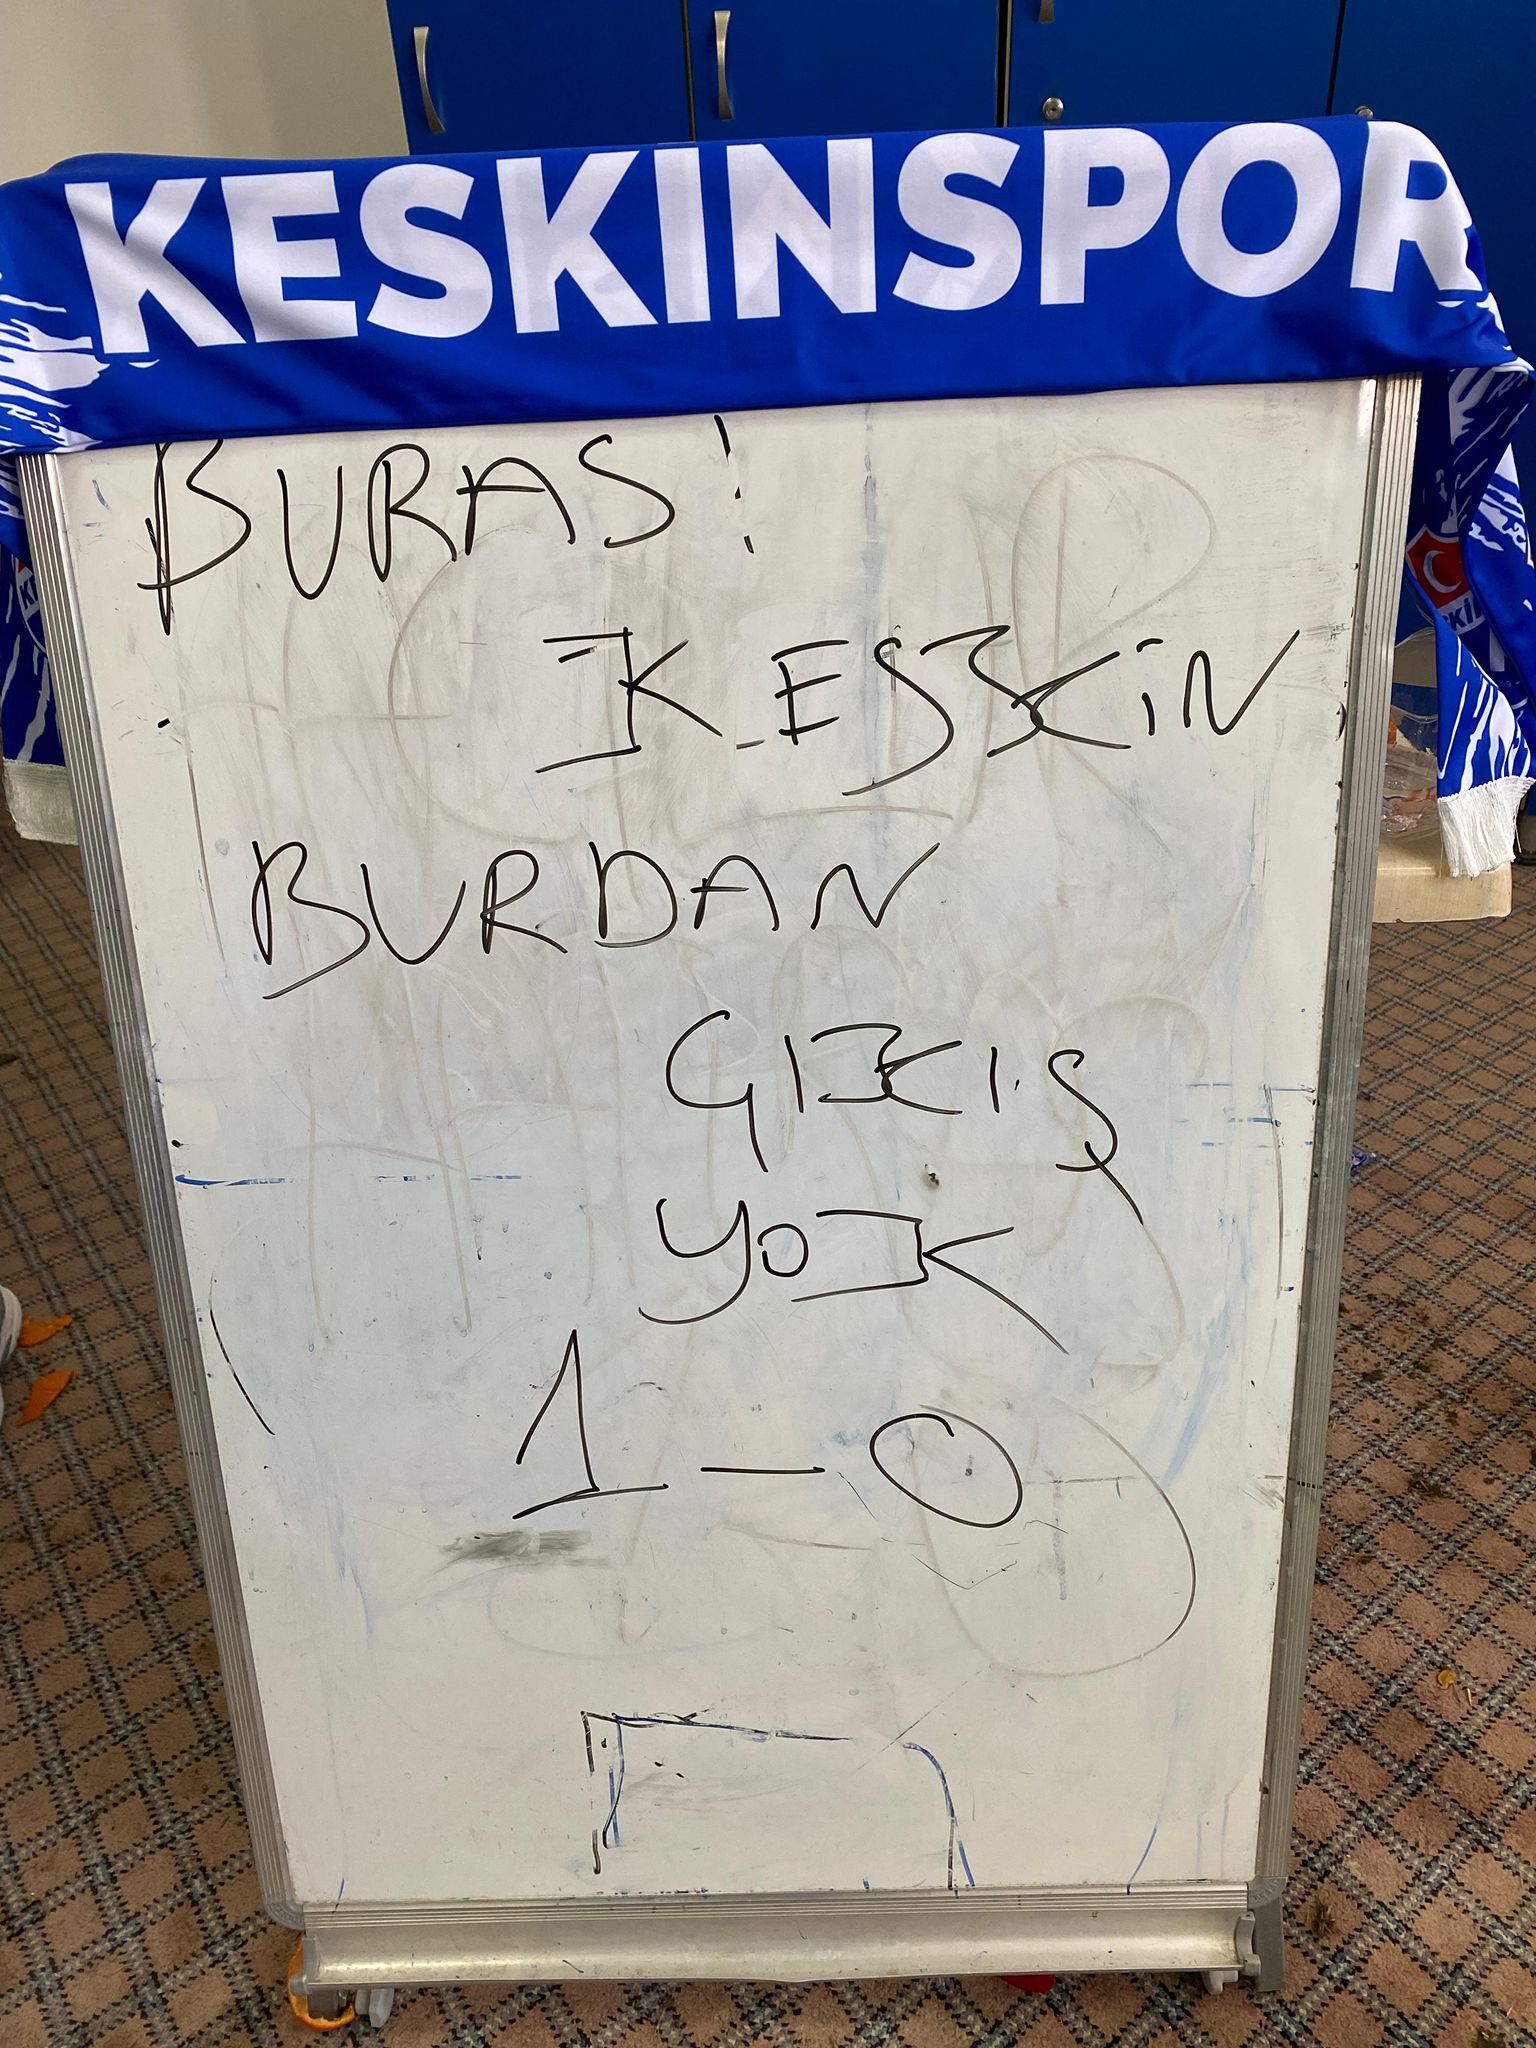 KESKINSPOR
BURASI
KESKİN
BURDAN
ÇIKIŞ
YOK
1-0